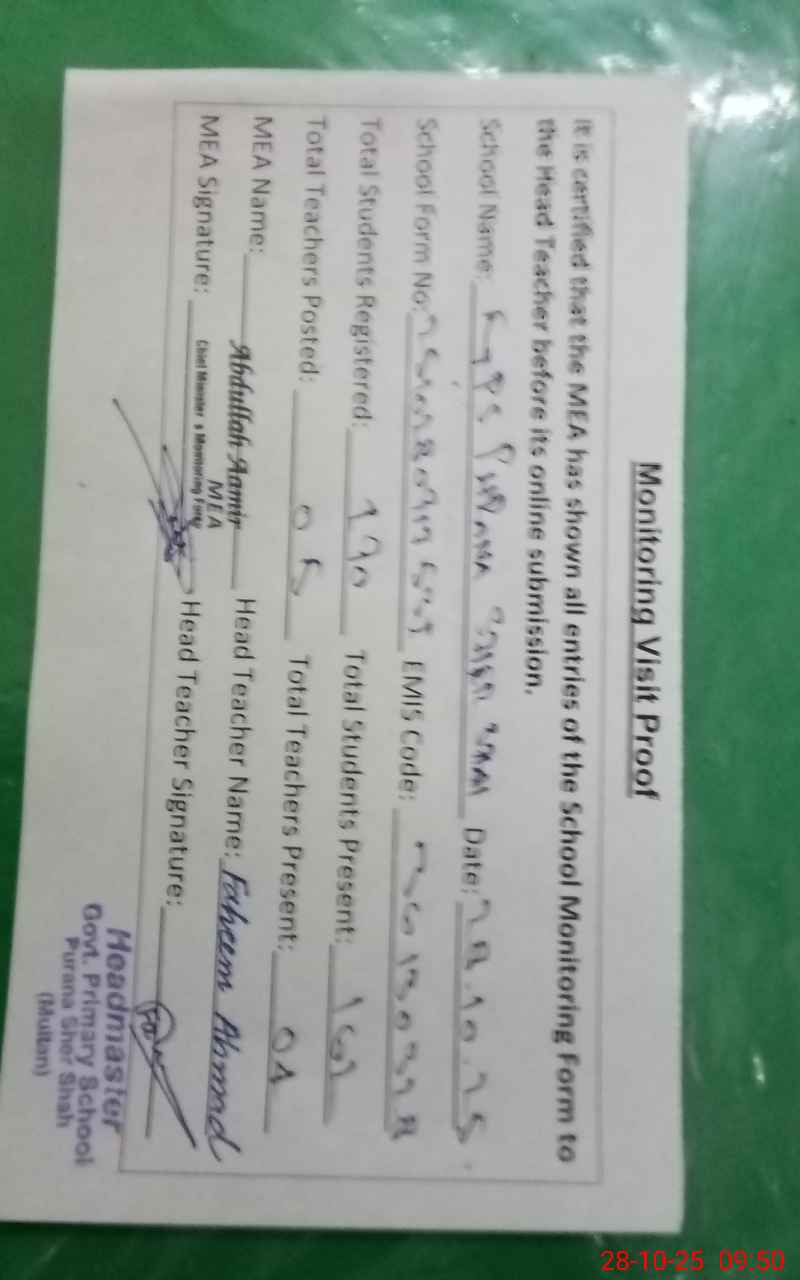 Monitoring Visit Proof
It is certified that the MEA has shown all entries of the School Monitoring Form to
the Head Teacher before its online submission.
School Name: GPS Purana Sher Shah Date: 28.10.25
School Form No: EMIS Code:
Total Students Registered: 190 Total Students Present: 161
Total Teachers Posted: 05 Total Teachers Present: 04
MEA Name: Abdullah Aamir Head Teacher Name: Faheem Ahmad
MEA
Chief Minister's Monitoring Force
MEA Signature: Head Teacher Signature:
Headmaster
Govt. Primary School
Purana Sher Shah
(Multan)
28-10-25 09:50